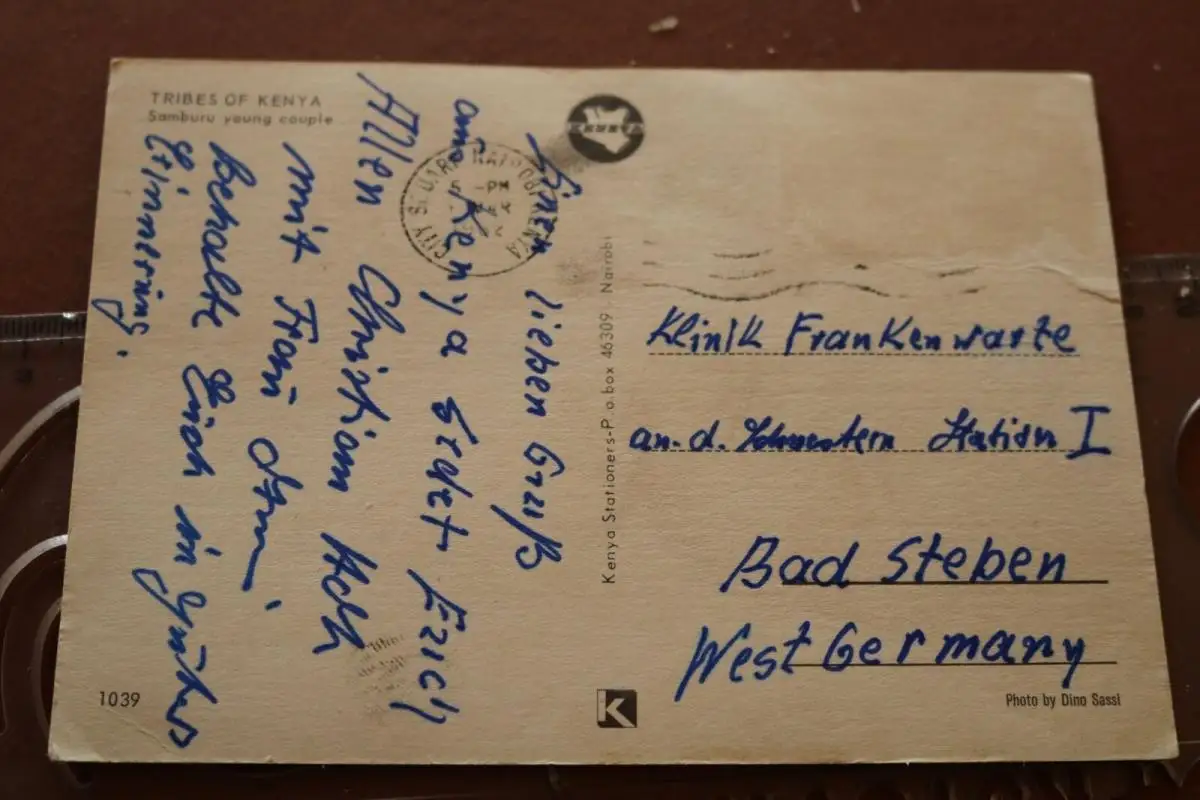 TRIBES OF KENYA
Samburu young couple
Einen lieben Gruß
aus Kenya sendet Euch
Allen Christian
mit Frau
behalte Euch in guter
Erinnerung.
CITY SQUARE NAIROBI KENYA
5 - PM
KENYA
Kenya Stationers-P.o.box 46309 - Nairobi
Klinik Frankenwarte
an. d. Schwestern Station I
Bad Steben
West Germany
1039
K
Photo by Dino Sassi